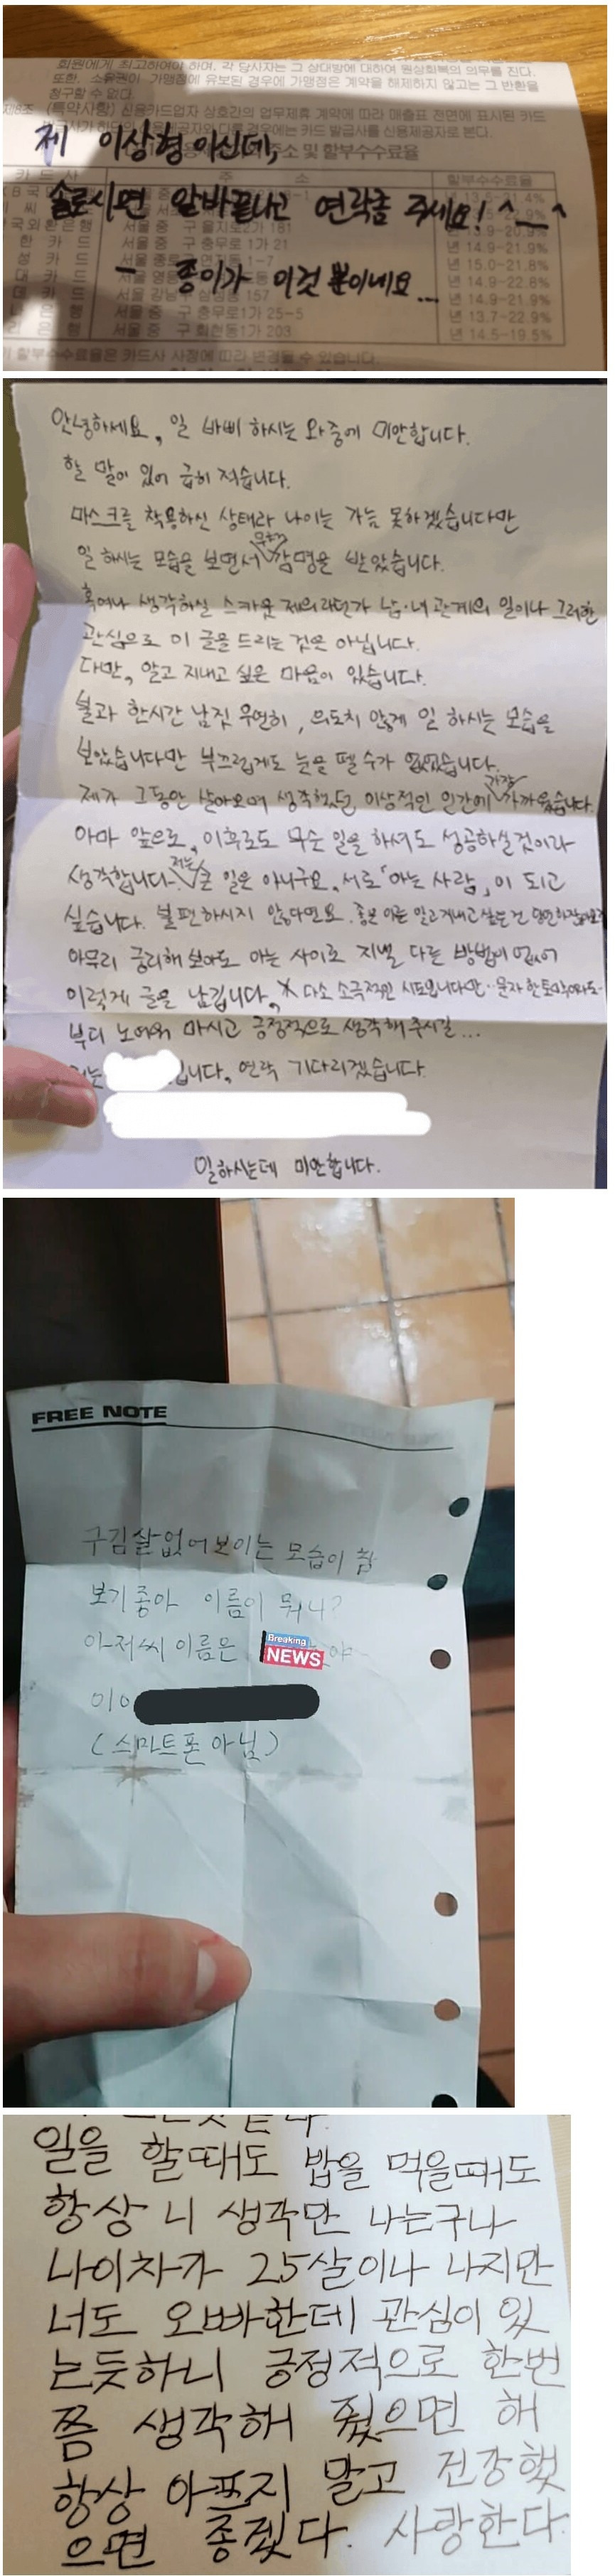 회원에게 최고하여야 하며, 각 당사자는 그 상대방에 대하여 원상회복의 의무를 진다.
또한, 소유권이 가맹점에 유보된 경우에 가맹점은 계약을 해제하지 않고는 그 반환을
청구할 수 없다.
(특약사항) 신용카드업자 상호간의 업무제휴 계약에 따라 매출표 전면에 표시된 카드
제공자와 다를 경우에는 카드 발급사를 신용제공자로 본다.
주소 및 할부수수료율
제 이상형이신데,
카 드 사 주 소 할부수수료율
솔로시면 알바끝나고 연락좀 주세요! ^__^
국외환은행 서울 중 구 을지로2가 181
한 카 드 서울 중 구 충무로 1가 21 년 14.9-21.9%
성 카 드 서울 1-7 년 15.0-21.8%
- 종이가 이것 뿐이네요...
대 카 드 서울 년 14.9-22.8%
데 카 드 서울 강남구 삼성동 157 년 14.9-21.9%
은 행 서울 중 구 충무로1가 25-5 년 13.7-22.9%
은 행 서울 중 구 회현동1가 203 년 14.5-19.5%
할부수수료율은 카드사 사정에 따라 변경될 수 있습니다.
안녕하세요, 일 바삐 하시는 와중에 미안합니다.
할 말이 있어 급히 적습니다.
마스크를 착용하신 상태라 나이는 가늠 못하겠습니다만
일 하시는 모습을 보면서 감명을 받았습니다.
혹여나 생각하실 스카웃 제의라던가 남·녀 관계의 일이나 그러한
관심으로 이 글을 드리는 것은 아닙니다.
다만, 알고 지내고 싶은 마음이 있습니다.
불과 한시간 남짓 우연히, 의도치 않게 일 하시는 모습을
보았습니다만 부끄럽게도 눈을 뗄 수가 없었습니다.
제가 그동안 살아오며 생각했던 이상적인 인간에 가장 가까웠습니다.
아마 앞으로, 이후로도 무슨 일을 하셔도 성공하실것이라
생각합니다. 저는 큰 일은 아니구요. 서로 「아는 사람」이 되고
싶습니다. 불편하시지 않다면요. 좋은 이를 알고지내고 싶은건 당연하잖아요?
아무리 궁리해 보아도 아는 사이로 지낼 다른 방법이 없어
이렇게 글을 남깁니다. 다소 소극적인 시도입니다만.. 문자 한토막이라도..
부디 노여워 마시고 긍정적으로 생각해 주시길...
저는 입니다. 연락 기다리겠습니다.
일하시는데 미안합니다.
FREE NOTE
구김살없어보이는 모습이 참
보기좋아 이름이 뭐니?
아저씨 이름은 Breaking NEWS 야
010
(스마트폰 아님)
일을 할때도 밥을 먹을때도
항상 니 생각만 나는구나
나이차가 25살이나 나지만
너도 오빠한데 관심이 있
는듯하니 긍정적으로 한번
쯤 생각해 줬으면 해
항상 아프지 말고 건강했
으면 좋겠다. 사랑한다.